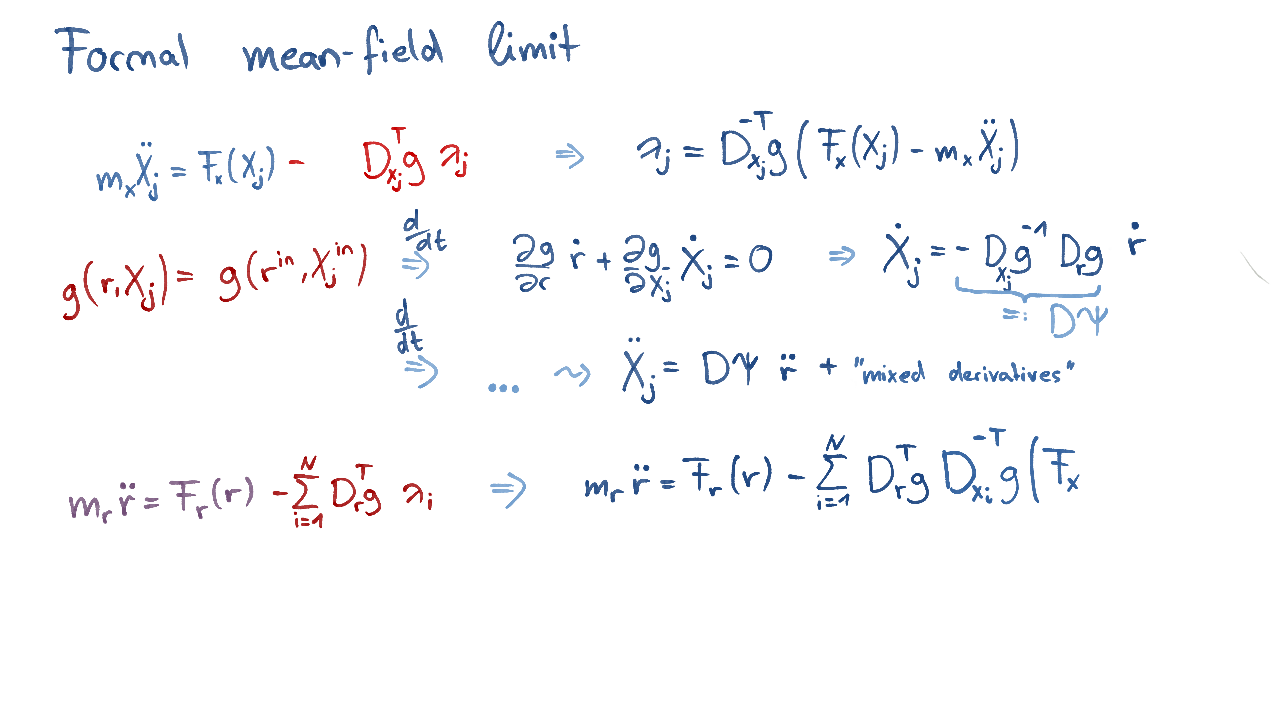 Formal mean-field limit
m_x Ẍ_j = F_x(X_j) - D_{x_j}^T g λ_j ⇒ λ_j = D_{x_j}^{-T} g (F_x(X_j) - m_x Ẍ_j)
g(r, X_j) = g(r^{in}, X_j^{in}) d/dt ⇒ ∂g/∂r ṙ + ∂g/∂X_j Ẋ_j = 0 ⇒ Ẋ_j = - D_{x_j} g^{-1} D_r g ṙ
=: DΨ
d/dt ⇒ ... ⇝ Ẍ_j = DΨ r̈ + "mixed derivatives"
m_r r̈ = F_r(r) - ∑_{i=1}^N D_r^T g λ_i ⇒ m_r r̈ = F_r(r) - ∑_{i=1}^N D_r^T g D_{x_i}^{-T} g (F_x